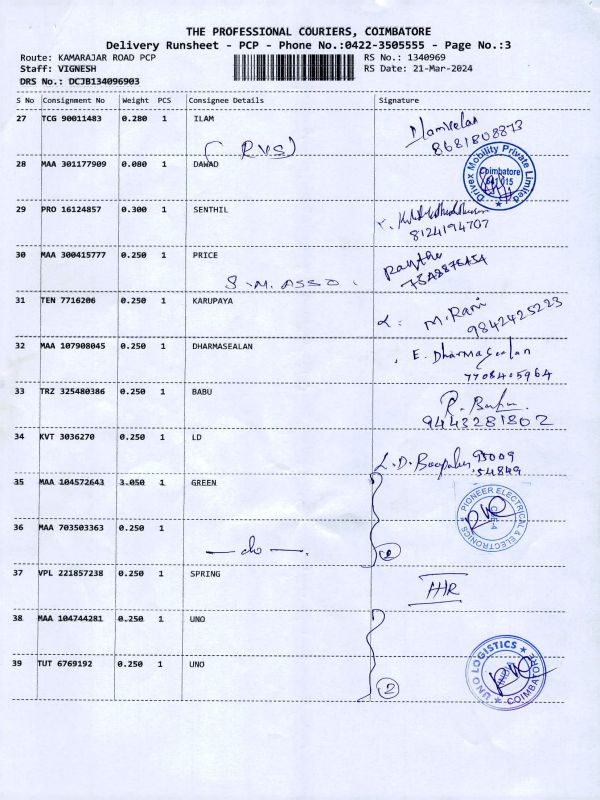 THE PROFESSIONAL COURIERS, COIMBATORE
Delivery Runsheet - PCP - Phone No.:0422-3505555 - Page No.:3
Route: KAMARAJAR ROAD PCP
Staff: VIGNESH
DRS No.: DCJB134096903
RS No.: 1340969
RS Date: 21-Mar-2024
S No Consignment No Weight PCS Consignee Details Signature
27 TCG 90011483 0.280 1 ILAM
8681808873
(RVS)
28 MAA 301177909 0.080 1 DAWAD
Drivex Mobility Private Limited
Coimbatore
641 015
29 PRO 16124857 0.300 1 SENTHIL
8124194707
30 MAA 300415777 0.250 1 PRICE
S.M. ASSO.
31 TEN 7716206 0.250 1 KARUPAYA
M. Rani
9842425223
32 MAA 107908045 0.250 1 DHARMASEALAN
E. Dharmasealan
7708405964
33 TRZ 325480386 0.250 1 BABU
R. Babu
9443281802
34 KVT 3036270 0.250 1 LD
L.D. 95009
54849
35 MAA 104572643 3.050 1 GREEN
PIONEER ELECTRICAL & ELECTRONICS
CBE-4
36 MAA 703503363 0.250 1
— do —.
37 VPL 221857238 0.250 1 SPRING
38 MAA 104744281 0.250 1 UNO
39 TUT 6769192 0.250 1 UNO
2
UNO LOGISTICS
COIMBATORE